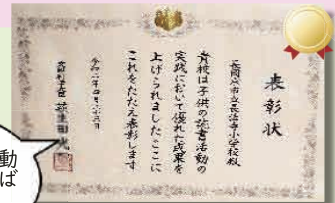 表彰状
長岡京市立長法寺小学校殿
貴校は子供の読書活動の
実践において優れた成果を
上げられましたここに
これをたたえ表彰します
令和二年四月二十三日
文部科学大臣 萩生田光一
動
ば